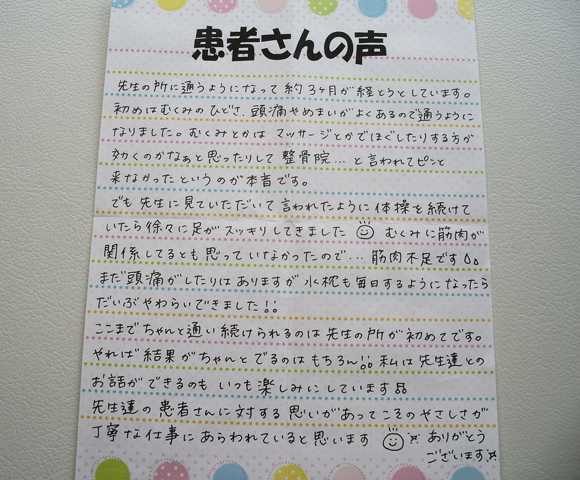 患者さんの声
先生の所に通うようになって約3ヶ月が経とうとしています。
初めはむくみのひどさ、頭痛やめまいがよくあるので通うように
なりました。むくみとかは マッサージとかでほぐしたりする方が
効くのかなぁと思ったりして 整骨院…と言われてピンと
来なかったというのが本音です。
でも 先生に見ていただいて言われたように体操を続けて
いたら徐々に足がスッキリしてきました むくみに筋肉が
関係してるとも思っていなかったので… 筋肉不足です
まだ頭痛がしたりはありますが 水枕も毎日するようになったら
だいぶやわらいできました!!
ここまでちゃんと通い続けられるのは先生の所が初めてです。
やれば結果がちゃんとでるのはもちろん!! 私は先生達との
お話ができるのも いつも楽しみにしています
先生達の患者さんに対する思いがあってこそのやさしさが
丁寧な仕事にあらわれていると思います ありがとう
ございます